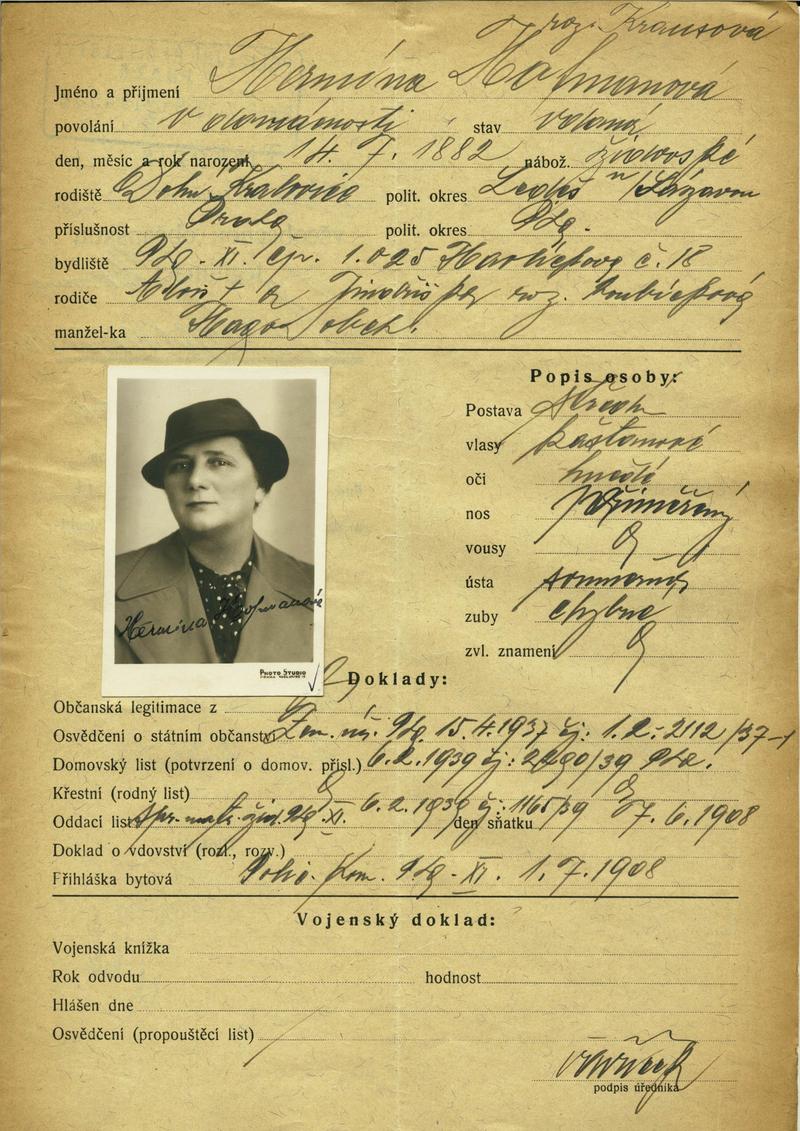 roz. Krausová
Jméno a příjmení Hermína Hofmanová
povolání v domácnosti stav vdaná
den, měsíc a rok narození 14. 7. 1882 nábož. židovské
rodiště Dolní Kralovice polit. okres Ledeč n/Sázavou
příslušnost Praha polit. okres
bydliště XI. čp. 1.025 č. 18
rodiče roz.
manžel-ka Hugo obch.
Popis osoby:
Postava středn
vlasy kaštanové
oči hnědé
nos přiměřený
vousy
ústa souměrná
zuby chybné
zvl. znamení
Hermína Hofmanová
PHOTO STUDIO
Doklady:
Občanská legitimace z
Osvědčení o státním občanství Zem. 15.4.1937 čj: 2112/37-1
Domovský list (potvrzení o domov. přísl.) 6.2.1939 čj: /39
Křestní (rodný list)
Oddací list XI. 6.2.1939 čj: 1165/39 den sňatku 7.6.1908
Doklad o vdovství (rozl., rozv.)
Přihláška bytová Kom. XI 1.7.1908
Vojenský doklad:
Vojenská knížka
Rok odvodu hodnost
Hlášen dne
Osvědčení (propouštěcí list)
podpis úředníka